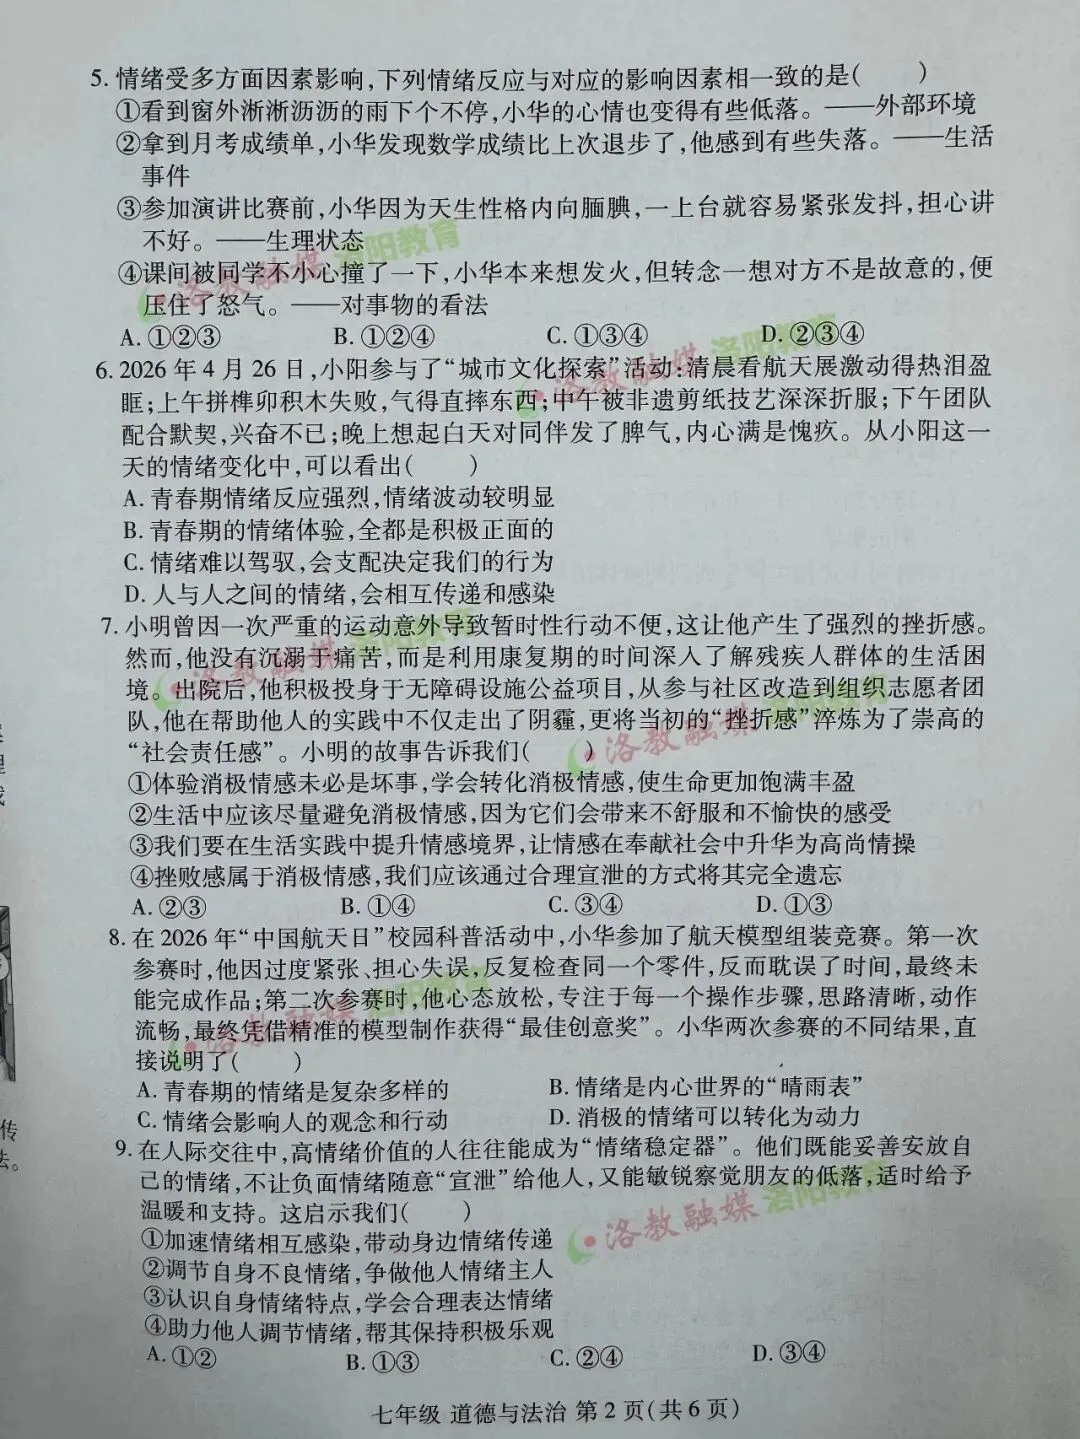 5. 情绪受多方面因素影响,下列情绪反应与对应的影响因素相一致的是(  )
①看到窗外淅淅沥沥的雨下个不停,小华的心情也变得有些低落。——外部环境
②拿到月考成绩单,小华发现数学成绩比上次退步了,他感到有些失落。——生活
事件
③参加演讲比赛前,小华因为天生性格内向腼腆,一上台就容易紧张发抖,担心讲
不好。——生理状态
④课间被同学不小心撞了一下,小华本来想发火,但转念一想对方不是故意的,便
压住了怒气。——对事物的看法
A. ①②③ B. ①②④ C. ①③④ D. ②③④
6. 2026年4月26日,小阳参与了“城市文化探索”活动:清晨看航天展激动得热泪盈
眶;上午拼榫卯积木失败,气得直摔东西;中午被非遗剪纸技艺深深折服;下午团队
配合默契,兴奋不已;晚上想起白天对同伴发了脾气,内心满是愧疚。从小阳这一
天的情绪变化中,可以看出(  )
A. 青春期情绪反应强烈,情绪波动较明显
B. 青春期的情绪体验,全都是积极正面的
C. 情绪难以驾驭,会支配决定我们的行为
D. 人与人之间的情绪,会相互传递和感染
7. 小明曾因一次严重的运动意外导致暂时性行动不便,这让他产生了强烈的挫折感。
然而,他没有沉溺于痛苦,而是利用康复期的时间深入了解残疾人群体的生活困
境。出院后,他积极投身于无障碍设施公益项目,从参与社区改造到组织志愿者团
队,他在帮助他人的实践中不仅走出了阴霾,更将当初的“挫折感”淬炼为了崇高的
“社会责任感”。小明的故事告诉我们(  )
①体验消极情感未必是坏事,学会转化消极情感,使生命更加饱满丰盈
②生活中应该尽量避免消极情感,因为它们会带来不舒服和不愉快的感受
③我们要在生活实践中提升情感境界,让情感在奉献社会中升华为高尚情操
④挫败感属于消极情感,我们应该通过合理宣泄的方式将其完全遗忘
A. ②③ B. ①④ C. ③④ D. ①③
8. 在2026年“中国航天日”校园科普活动中,小华参加了航天模型组装竞赛。第一次
参赛时,他因过度紧张、担心失误,反复检查同一个零件,反而耽误了时间,最终未
能完成作品;第二次参赛时,他心态放松,专注于每一个操作步骤,思路清晰,动作
流畅,最终凭借精准的模型制作获得“最佳创意奖”。小华两次参赛的不同结果,直
接说明了(  )
A. 青春期的情绪是复杂多样的 B. 情绪是内心世界的“晴雨表”
C. 情绪会影响人的观念和行动 D. 消极的情绪可以转化为动力
9. 在人际交往中,高情绪价值的人往往能成为“情绪稳定器”。他们既能妥善安放自
己的情绪,不让负面情绪随意“宣泄”给他人,又能敏锐察觉朋友的低落,适时给予
温暖和支持。这启示我们(  )
①加速情绪相互感染,带动身边情绪传递
②调节自身不良情绪,争做他人情绪主人
③认识自身情绪特点,学会合理表达情绪
④助力他人调节情绪,帮其保持积极乐观
A. ①② B. ①③ C. ②④ D. ③④
七年级 道德与法治 第2页(共6页)
洛教融媒 洛阳教育
洛教融媒 洛阳教育
洛教融媒 洛阳教育
洛教融媒 洛阳教育
洛教融媒 洛阳教育
洛教融媒 洛阳教育
传
法。